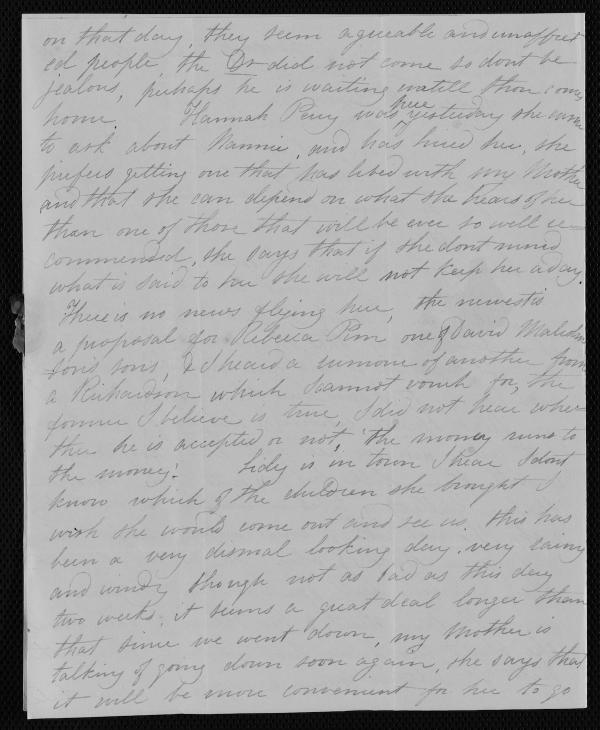 on that day, they seem agreeable and unaffect
ed people, the Dr did not come so dont be
jealous, perhaps he is waiting untill thou comes
home. Hannah Perry was here yesterday she came
to ask about Nannie, and has hired her, she
prefers getting one that has lived with my Mother
and that she can depend on what she hears of her
than one of those that will be ever so well re=
commended, she says that if she dont mind
what is said to her she will not keep her a day.
There is no news flying here, the newest is
a proposal for Rebecca Pim one of David Malcolm
sons, & I heard a rumore of another from
a Richardson which I cannot vouch for, the
former I believe is true, I did not hear whe=
ther he is accepted or not, 'the money runs to
the money'! Lidy is in town I hear I dont
know which of the children she brought I
wish she would come out and see us. this has
been a very dismal looking day. very rainy
and windy though not as bad as this day
two weeks. it seems a great deal longer than
that since we went down, my Mother is
talking of going down soon again, she says that
it will be more convenient for her to go